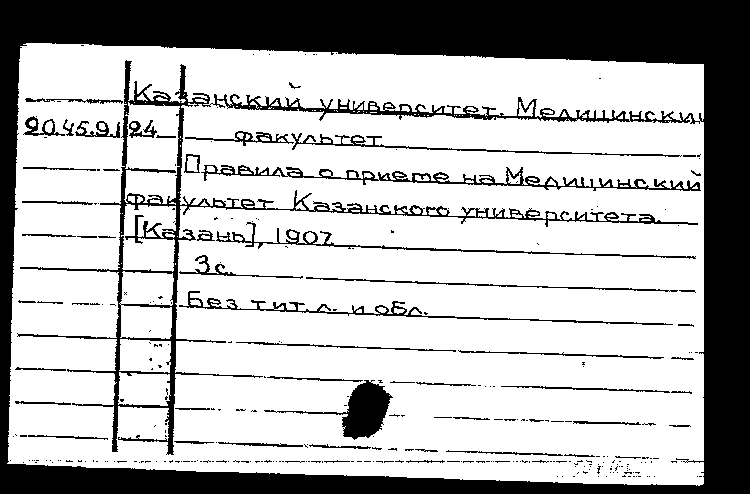 Казанский университет. Медицинский
20.45.9.124 факультет
Правила о приеме на Медицинский
факультет Казанского университета.
[Казань], 1907.
3с.
Без тит. л. и обл.